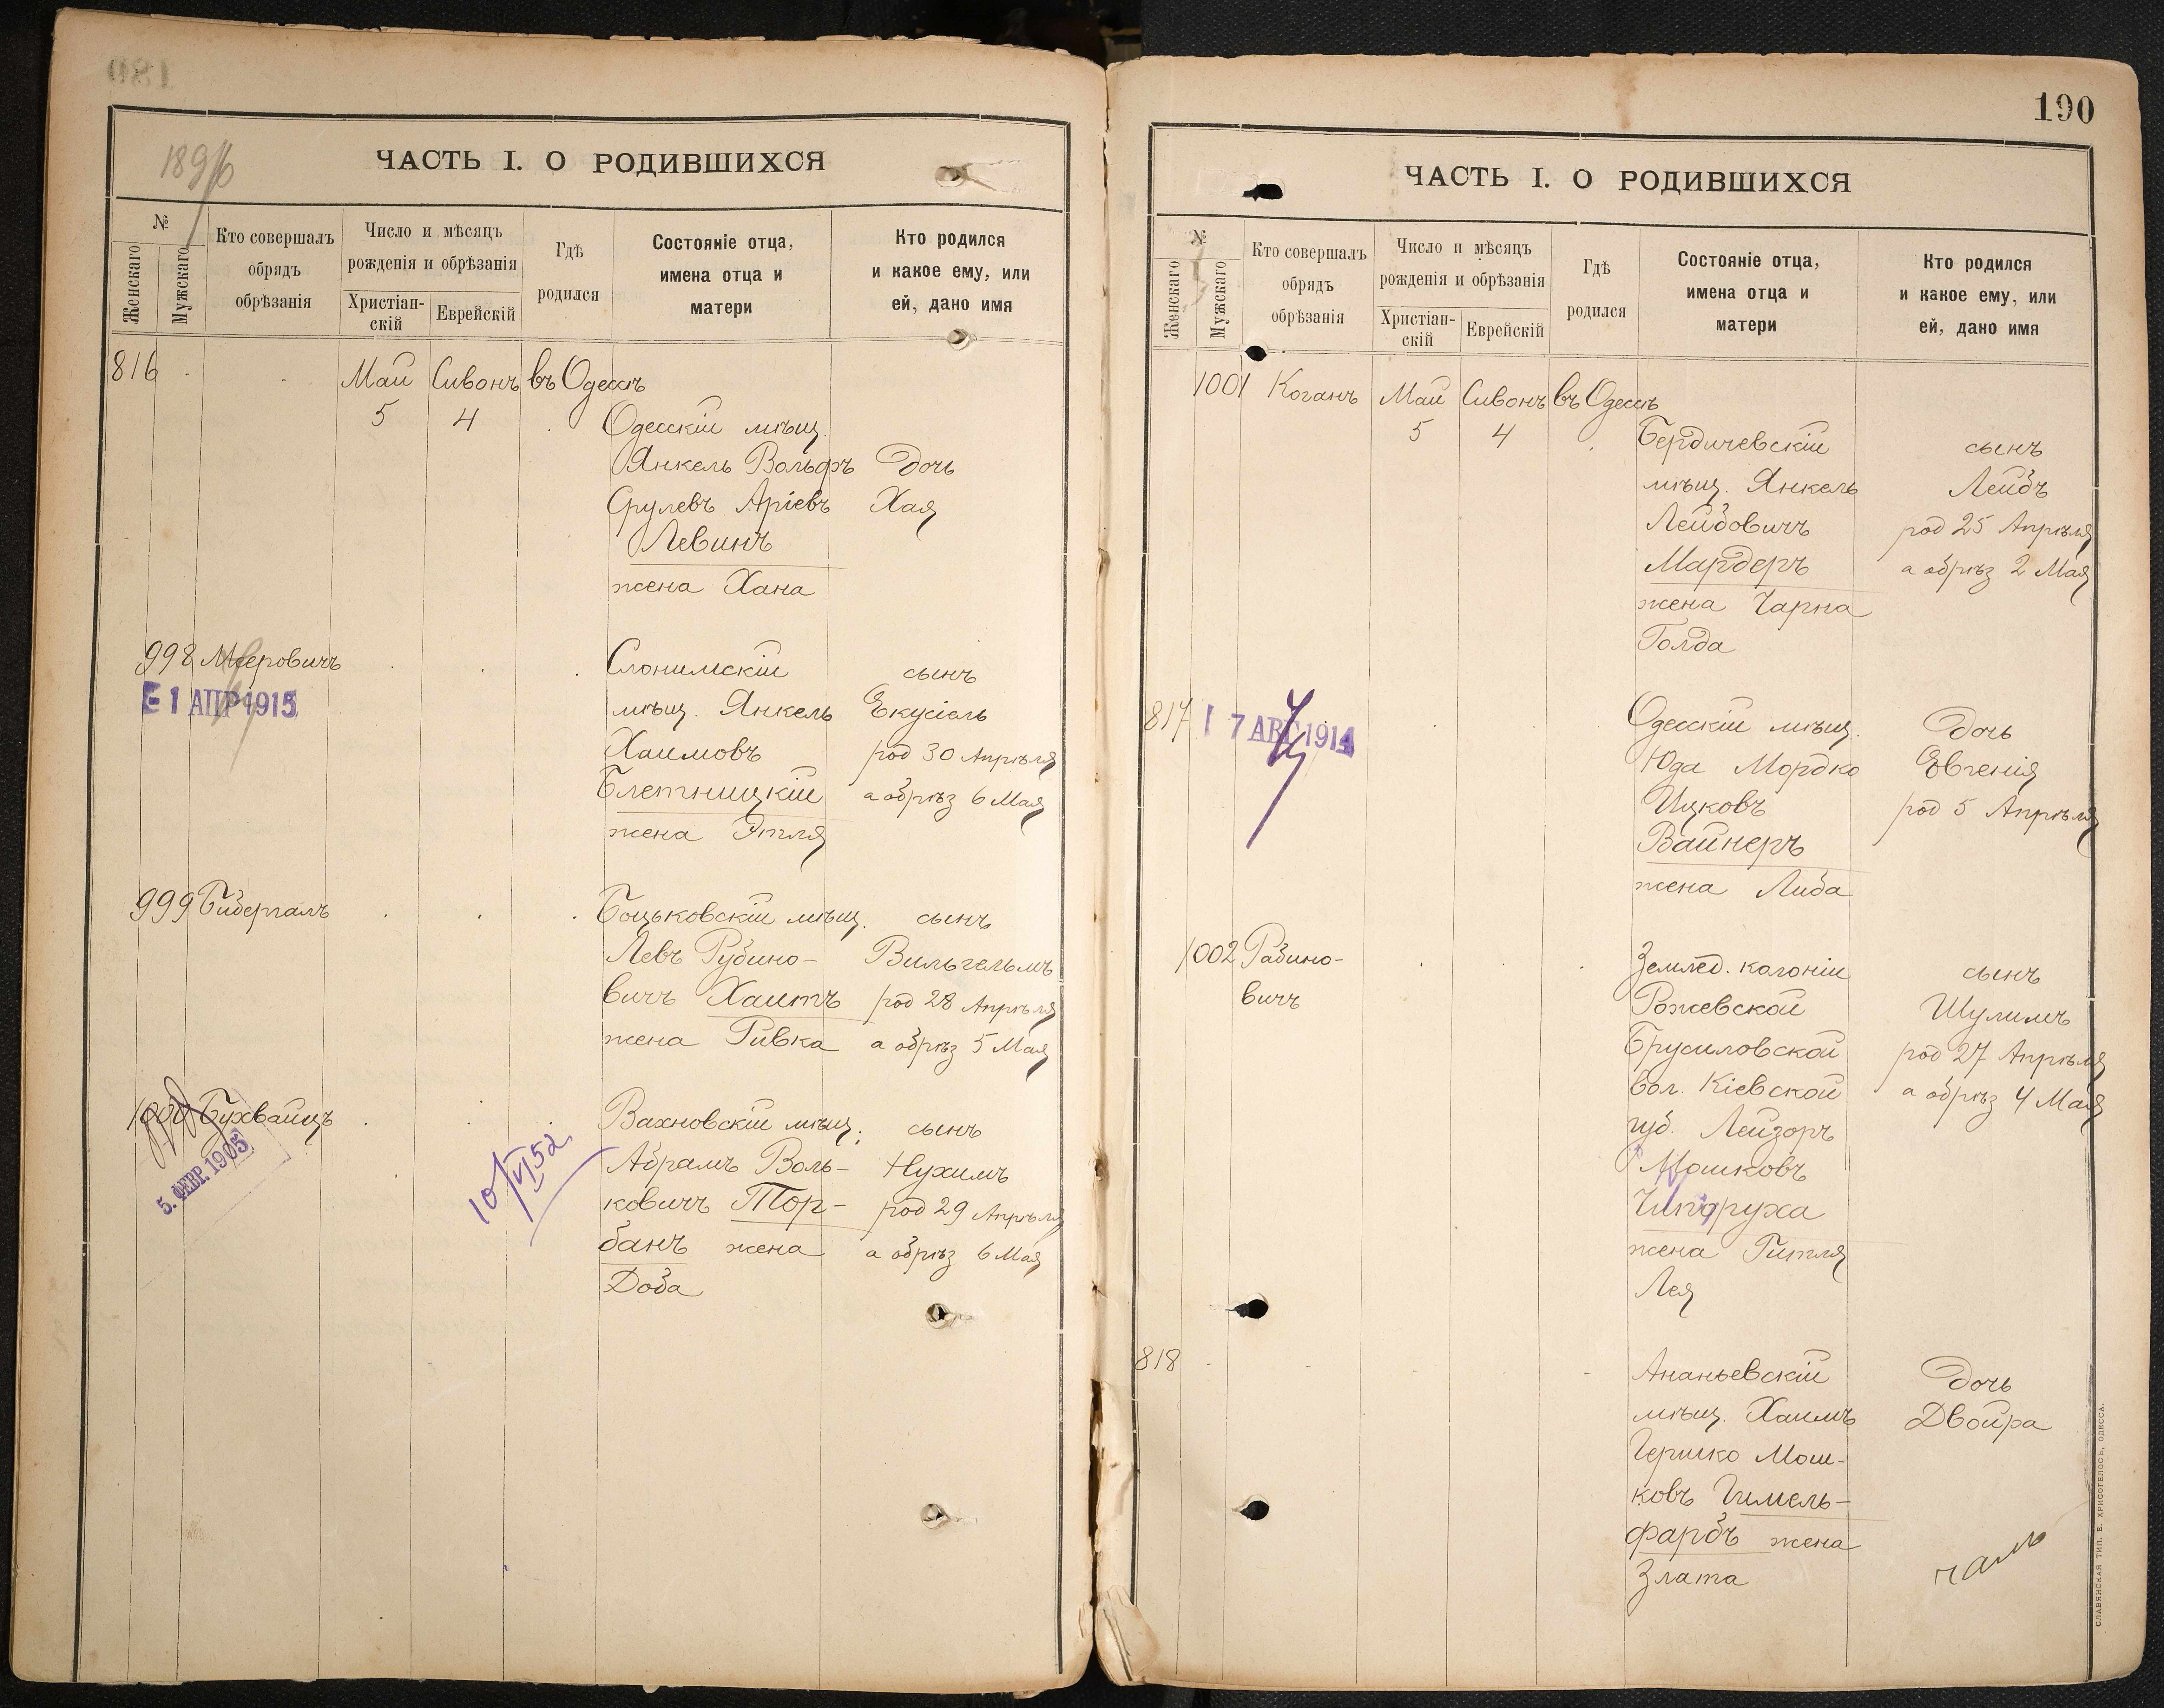 1896
ЧАСТЬ I. О РОДИВШИХСЯ
№
Женскаго
Мужскаго
Кто совершалъ
обрядъ
обрѣзанія
Число и мѣсяцъ
рожденія и обрѣзанія
Христіан-
скій
Еврейскій
Гдѣ
родился
Состояніе отца,
имена отца и
матери
Кто родился
и какое ему, или
ей, дано имя
816 Май Сивонъ въ Одессѣ
5 4 Одесскій мѣщ.
Янкель Вольфъ дочь
Срулевъ Аріевъ Хая
Левинъ
жена Хана
998 Меровичъ Слонимскій сынъ
1 АПР 1915 мѣщ. Янкель Екусіель
Хаимовъ род 30 Апрѣля
Блетницкій а обрѣз 6 Мая
жена Этля
999 Бибергалъ Боцьковскій мѣщ. сынъ
Левъ Рубино- Вильгельмъ
вичъ Хаитъ род 28 Апрѣля
жена Ривка а обрѣз 5 Мая
1000 Бухвайцъ Вахновскій мѣщ. сынъ
5. ФЕВР. 1905 10/VI 52 Абрамъ Воль- Нухимъ
ковичъ Тор- род 29 Апрѣля
банъ жена а обрѣз 6 Мая
Доба
190
ЧАСТЬ I. О РОДИВШИХСЯ
№
Женскаго
Мужскаго
Кто совершалъ
обрядъ
обрѣзанія
Число и мѣсяцъ
рожденія и обрѣзанія
Христіан-
скій
Еврейскій
Гдѣ
родился
Состояніе отца,
имена отца и
матери
Кто родился
и какое ему, или
ей, дано имя
1001 Коганъ Май Сивонъ въ Одессѣ
5 4 Бердичевскій сынъ
мѣщ. Янкель Лейбъ
Лейбовичъ род 25 Апрѣля
Мардеръ а обрѣз 2 Мая
жена Чарна
Голда
817 7 АВГ 1914 Одесскій мѣщ. дочь
Юда Мордко Евгенія
Ицковъ род 5 Апрѣля
Вайнеръ
жена Либа
1002 Рабино- Землед. колоніи сынъ
вичъ Рожевской Шулимъ
Брусиловской род 27 Апрѣля
вол. Кіевской а обрѣз 4 Мая
губ. Лейзоръ
Мошковъ
жена Гитля
Лея
818 Ананьевскій дочь
мѣщ. Хаимъ Двойра
Гершко Мош-
ковъ Гимель-
фарбъ жена
Злата
СЛАВЯНСКАЯ ТИП. Е. ХРИСОГЕЛОСЪ, ОДЕССА.